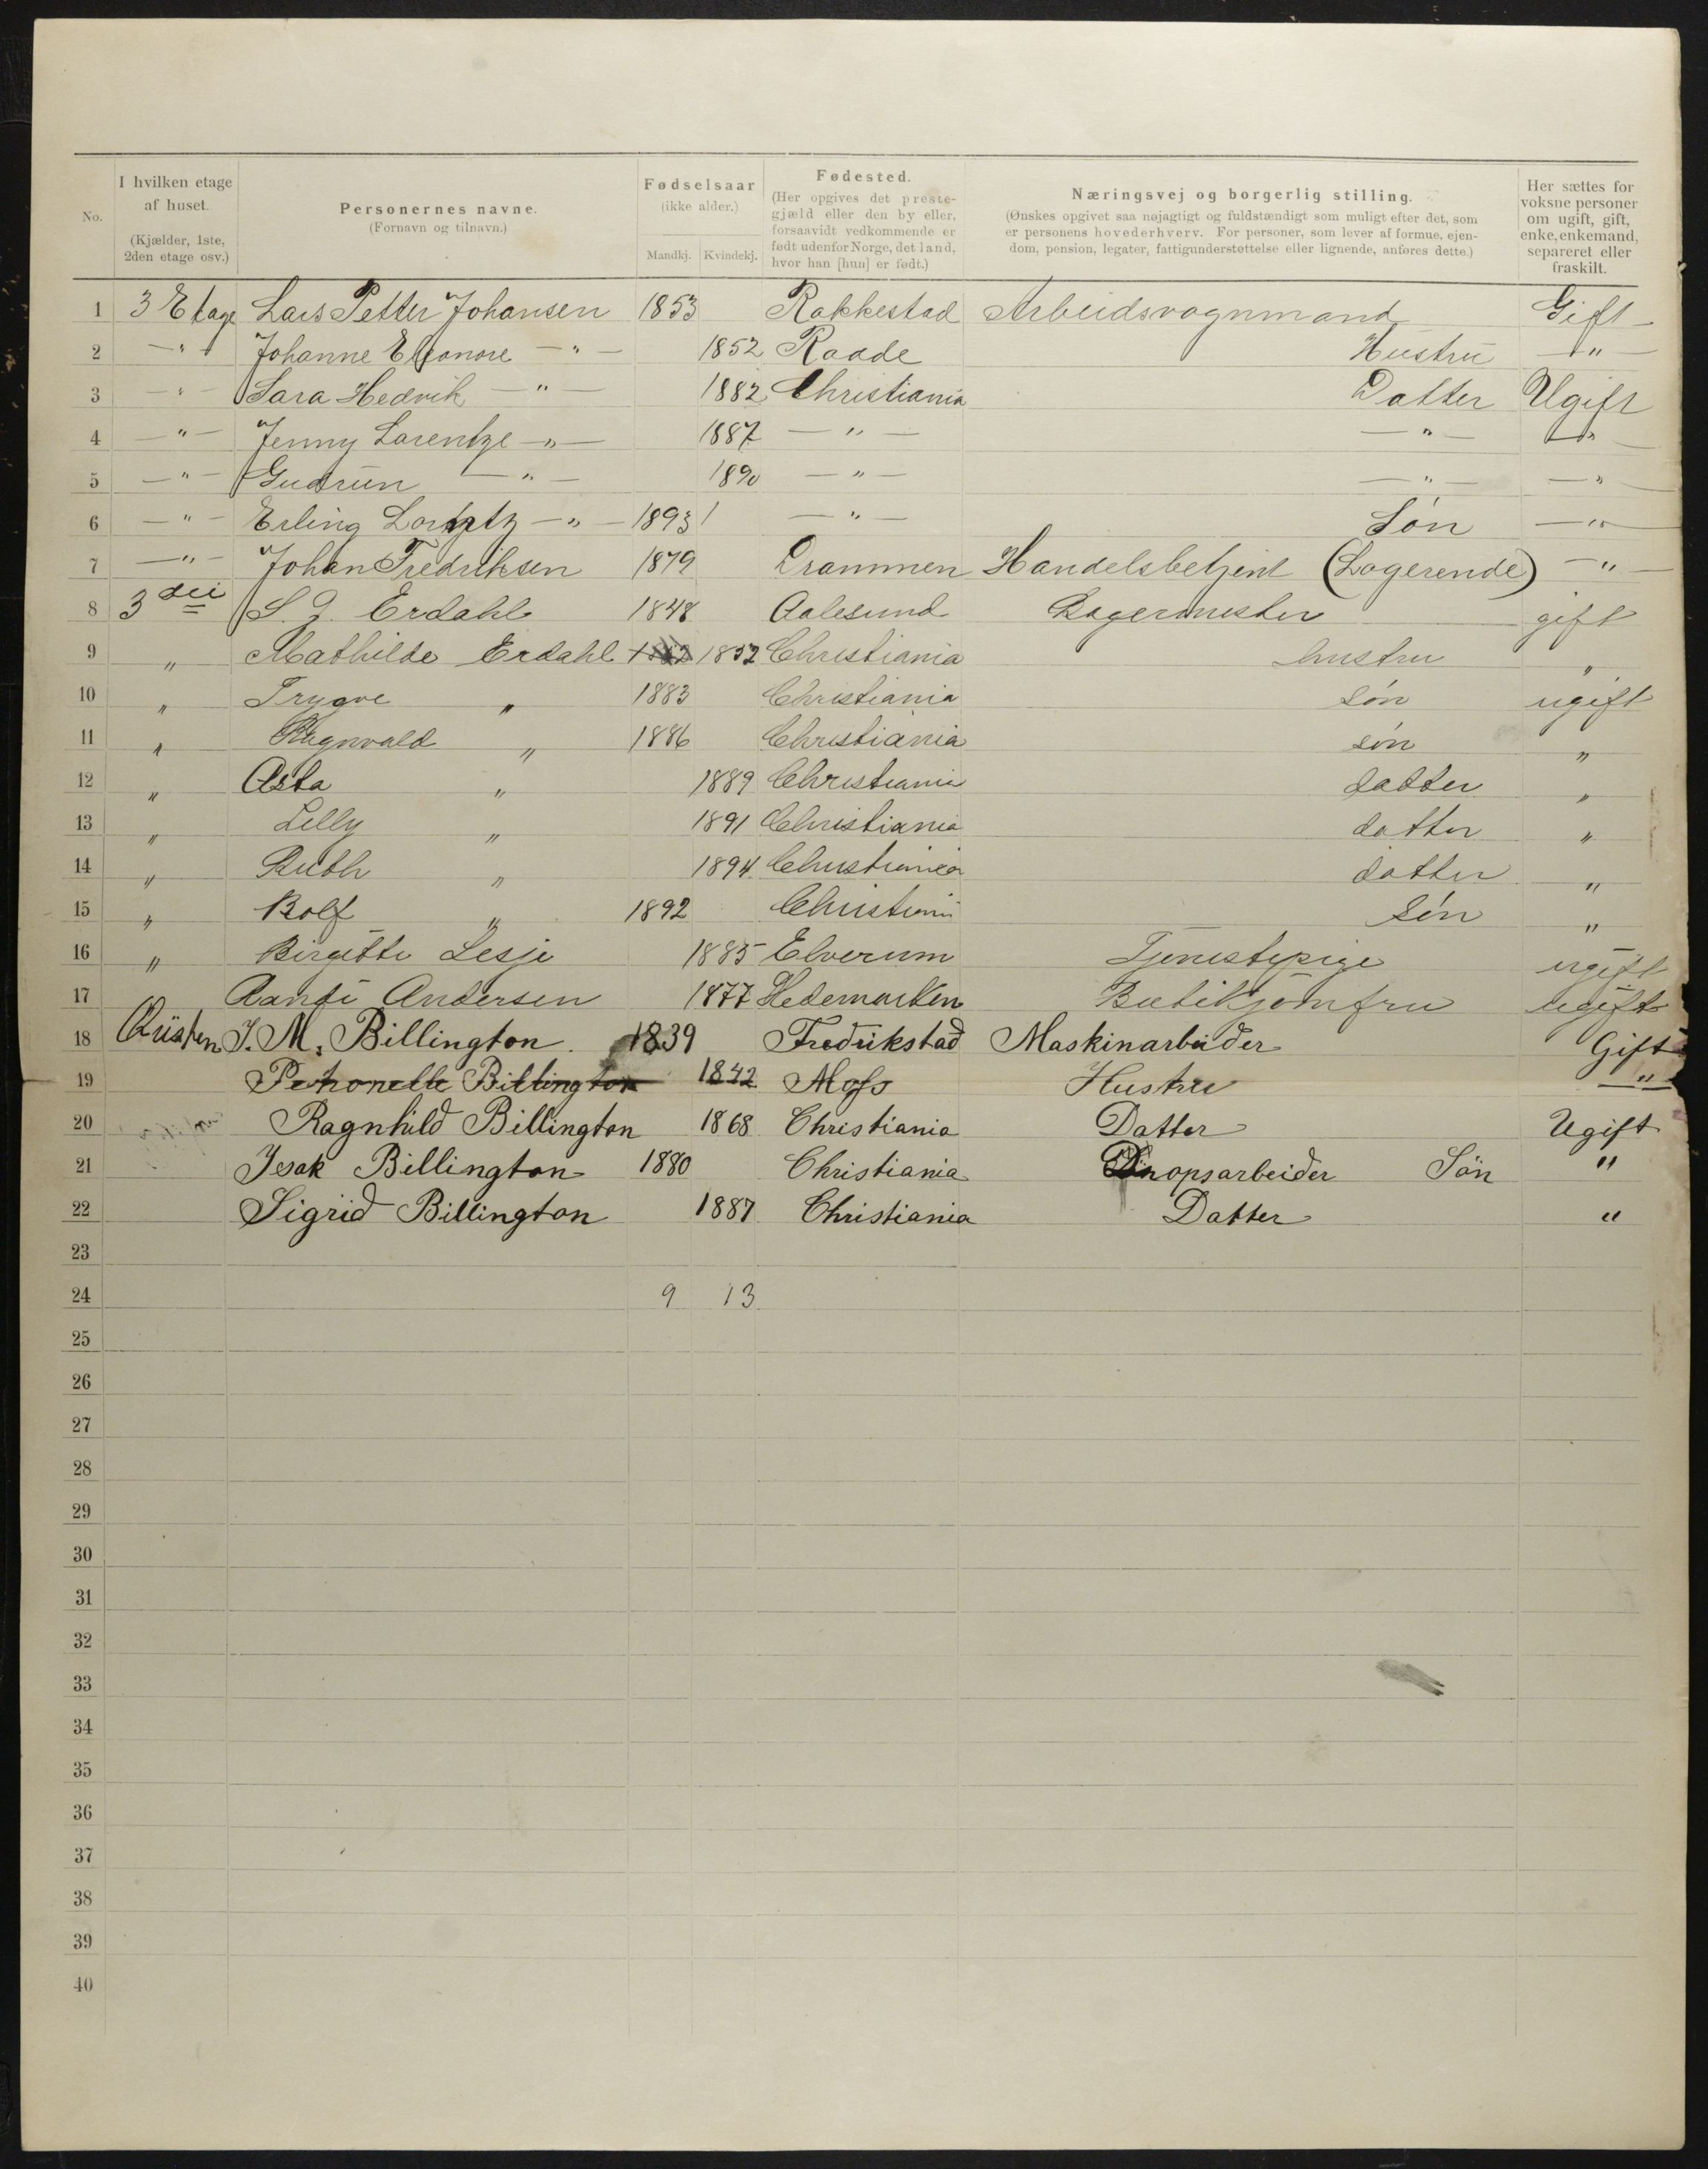 No.
I hvilken etage af huset.
(Kjælder, 1ste, 2den etage osv.)
Personernes navne.
(Fornavn og tilnavn.)
Fødselsaar
(ikke alder.)
Mandkj. Kvindekj.
Fødested.
(Her opgives det prestegjæld eller den by eller, forsaavidt vedkommende er født udenfor Norge, det land, hvor han [hun] er født.)
Næringsvej og borgerlig stilling.
(Ønskes opgivet saa nøjagtigt og fuldstændigt som muligt efter det, som er personens hovederhverv. For personer, som lever af formue, ejendom, pension, legater, fattigunderstøttelse eller lignende, anføres dette.)
Her sættes for voksne personer om ugift, gift, enke, enkemand, separeret eller fraskilt.
1 3 Etage Lars Petter Johansen 1853 Rakkestad Arbeidsvognmand Gift
2 — " — Johanne Eleonore — " — 1852 Raade Hustru — " —
3 — " — Sara Hedvik — " — 1882 Christiania Datter Ugift
4 — " — Jenny Larentze — " — 1887 — " — — " — — " —
5 — " — Gudrun — " — 1890 — " — — " — — " —
6 — " — Erling — " — 1893 — " — Søn — " —
7 — " — Johan Fredriksen 1879 Drammen Handelsbetjent (Logerende) — " —
8 3 Erdahl 1848 Aalesund Lagermester gift
9 " Mathilde Erdahl 1852 Christiania hustru "
10 " Trygve " 1883 Christiania søn ugift
11 " Ragnvald " 1886 Christiania søn "
12 " Asta " 1889 Christiania datter "
13 " Lilly " 1891 Christiania datter "
14 " Ruth " 1894 Christiania datter "
15 " Rolf " 1892 Christiania søn "
16 " Birgitte Lesje 1885 Elverum Tjenestepige ugift
17 Randi Andersen 1877 Hedemarken Butikjomfru ugift
18 J. M. Billington 1839 Fredrikstad Maskinarbeider Gift
19 Petronelle Billington 1842 Moss Hustru "
20 Ragnhild Billington 1868 Christiania Datter Ugift
21 Isak Billington 1880 Christiania Søn "
22 Sigrid Billington 1887 Christiania Datter "
23
24 9 13
25
26
27
28
29
30
31
32
33
34
35
36
37
38
39
40